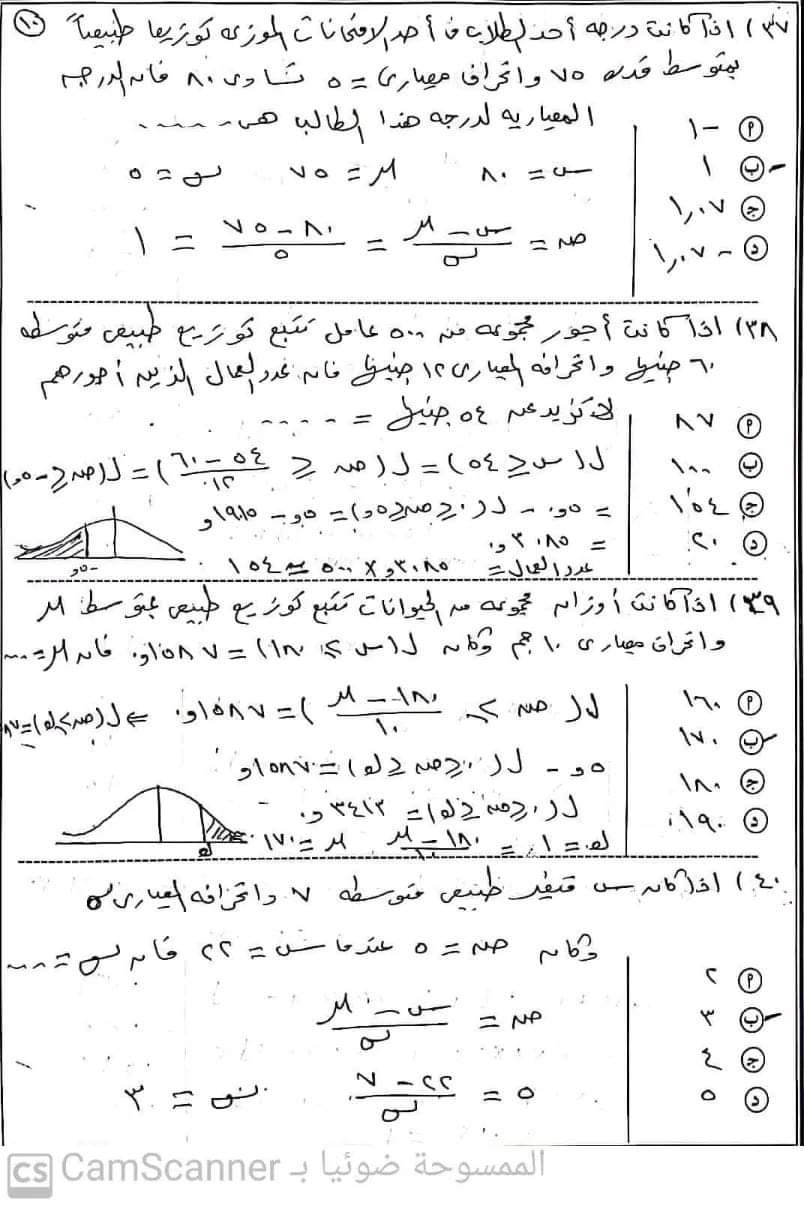 ١٠
٣٧) اذا كانت درجه أحد الطلاب فى أحد الامتحانات الموزعه توزيعا طبيعياً
بمتوسط قدره ٧٥ وانحراف معيارى = ٥ تساوى ٨٠ فان الدرجه
المعياريه لدرجه هذا الطالب هى ......
أ -١
ب ١
ج ١,٠٧
د -١,٠٧
س = ٨٠ μ = ٧٥ σ = ٥
ص = (س - μ)/σ = (٨٠ - ٧٥)/٥ = ١
٣٨) اذا كانت أجور مجموعه من ٥٠٠ عامل تتبع توزيع طبيعى متوسطه
٦٠ جنيهاً وانحرافه المعيارى ١٢ جنيهاً فان عدد العمال الذين أجورهم
لا تزيد عن ٥٤ جنيه = .....
أ ٨٧
ب ١٠٠
ج ١٥٤
د ٢٠
ل(س ≤ ٥٤) = ل(ص ≤ (٥٤ - ٦٠)/١٢) = ل(ص ≤ -٠,٥)
= ٠,٥ - ل(٠ ≤ ص ≤ ٠,٥) = ٠,٥ - ٠,١٩١٥
= ٠,٣٠٨٥
-٠,٥
عدد العمال = ٠,٣٠٨٥ × ٥٠٠ ≃ ١٥٤
٣٩) اذا كانت أوزان مجموعه من الحيوانات تتبع توزيع طبيعى بمتوسط μ
وانحراف معيارى ١٠ جم وكان ل(س ≥ ١٨٠) = ٠,١٥٨٧ فان μ = ....
أ ١٦٠
ب ١٧٠
ج ١٨٠
د ١٩٠
ل(ص ≥ (١٨٠ - μ)/١٠) = ٠,١٥٨٧ ⇐ ل(ص ≥ ك) = ٨٧
٠,٥ - ل(٠ ≤ ص ≤ ك) = ٠,١٥٨٧
ل(٠ ≤ ص ≤ ك) = ٠,٣٤١٣
ك
ك = ١ = (١٨٠ - μ)/١٠ μ = ١٧٠
٤٠) اذا كان س متغير طبيعى متوسطه ٧ وانحرافه المعيارى σ
وكان ص = ٥ عندما س = ٢٢ فان σ = ....
أ ٢
ب ٣
ج ٤
د ٥
ص = (س - μ)/σ
٥ = (٢٢ - ٧)/σ σ = ٣
CS CamScanner الممسوحة ضوئيا بـ